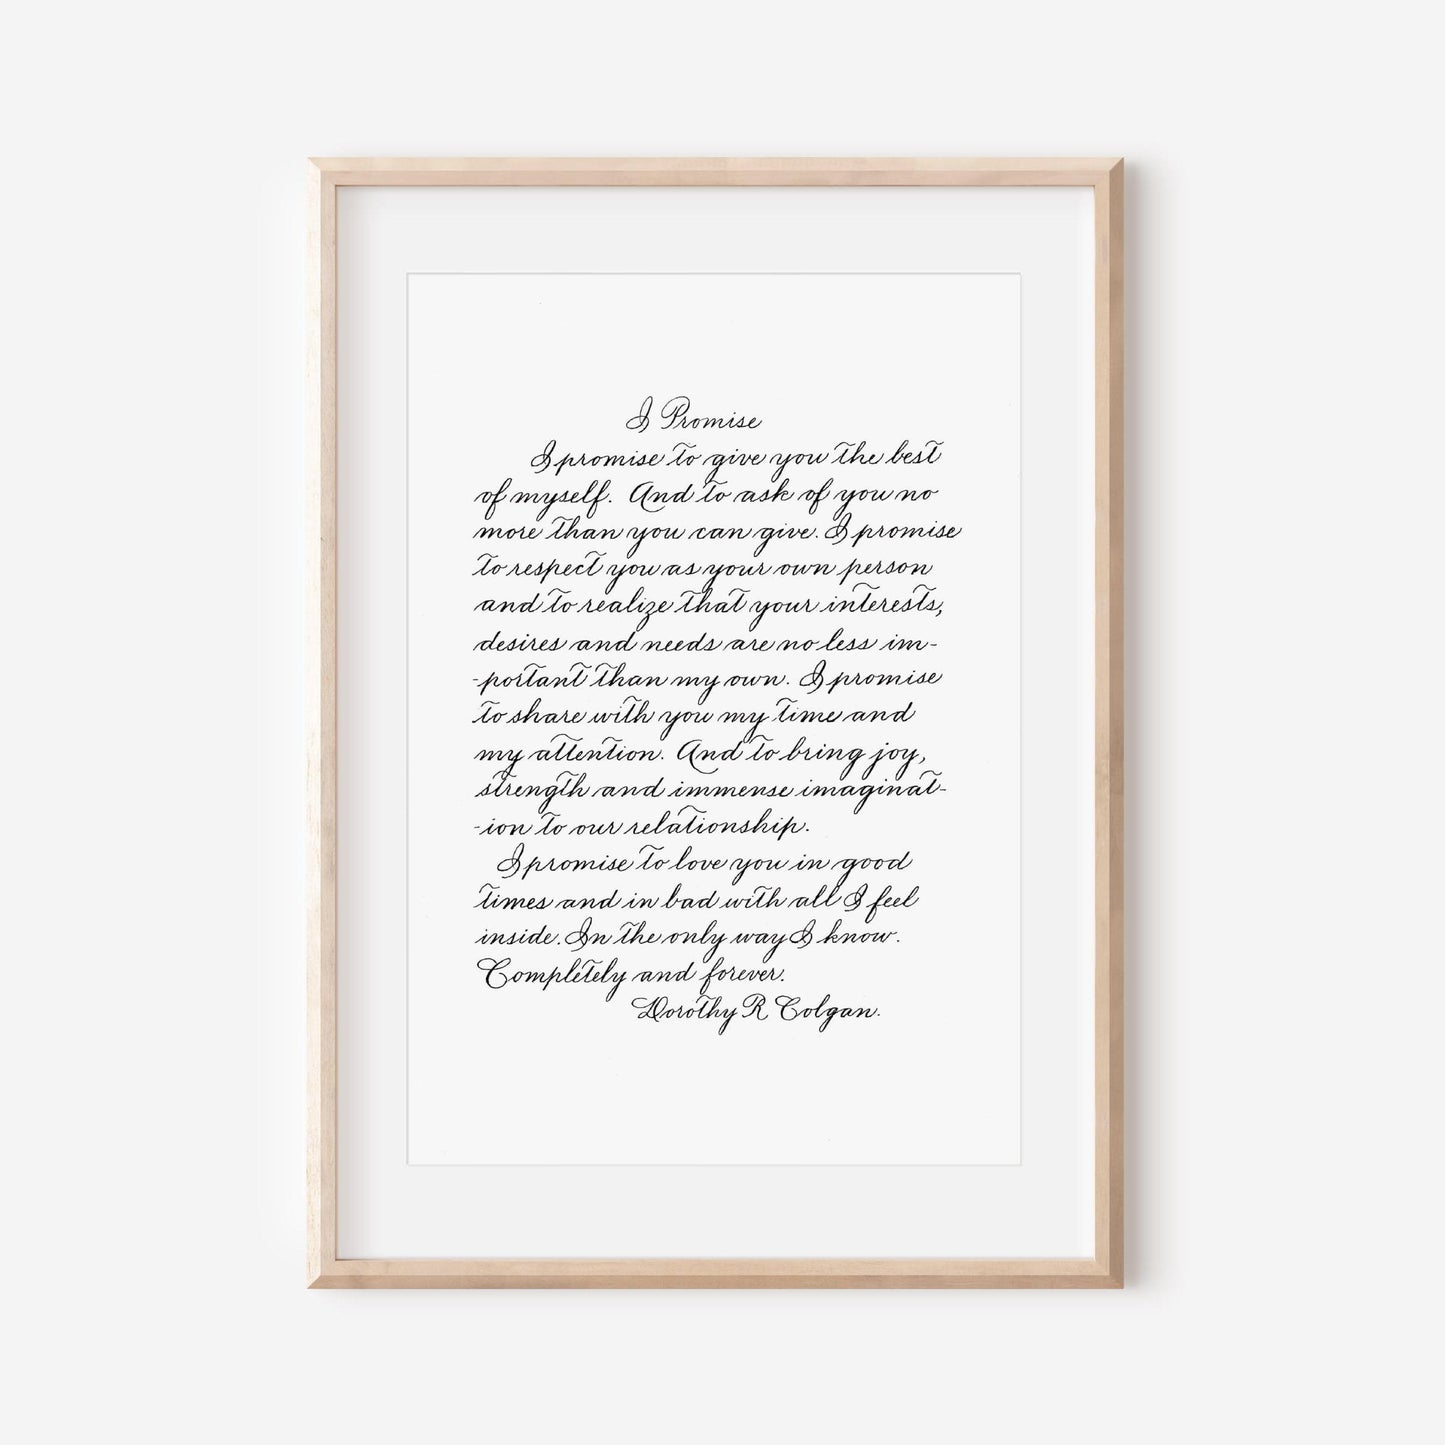 I Promise
I promise to give you the best
of myself. And to ask of you no
more than you can give. I promise
to respect you as your own person
and to realize that your interests,
desires and needs are no less im-
-portant than my own. I promise
to share with you my time and
my attention. And to bring joy,
strength and immense imaginat-
-ion to our relationship.
I promise to love you in good
times and in bad with all I feel
inside. In the only way I know.
Completely and forever.
Dorothy R Colgan.